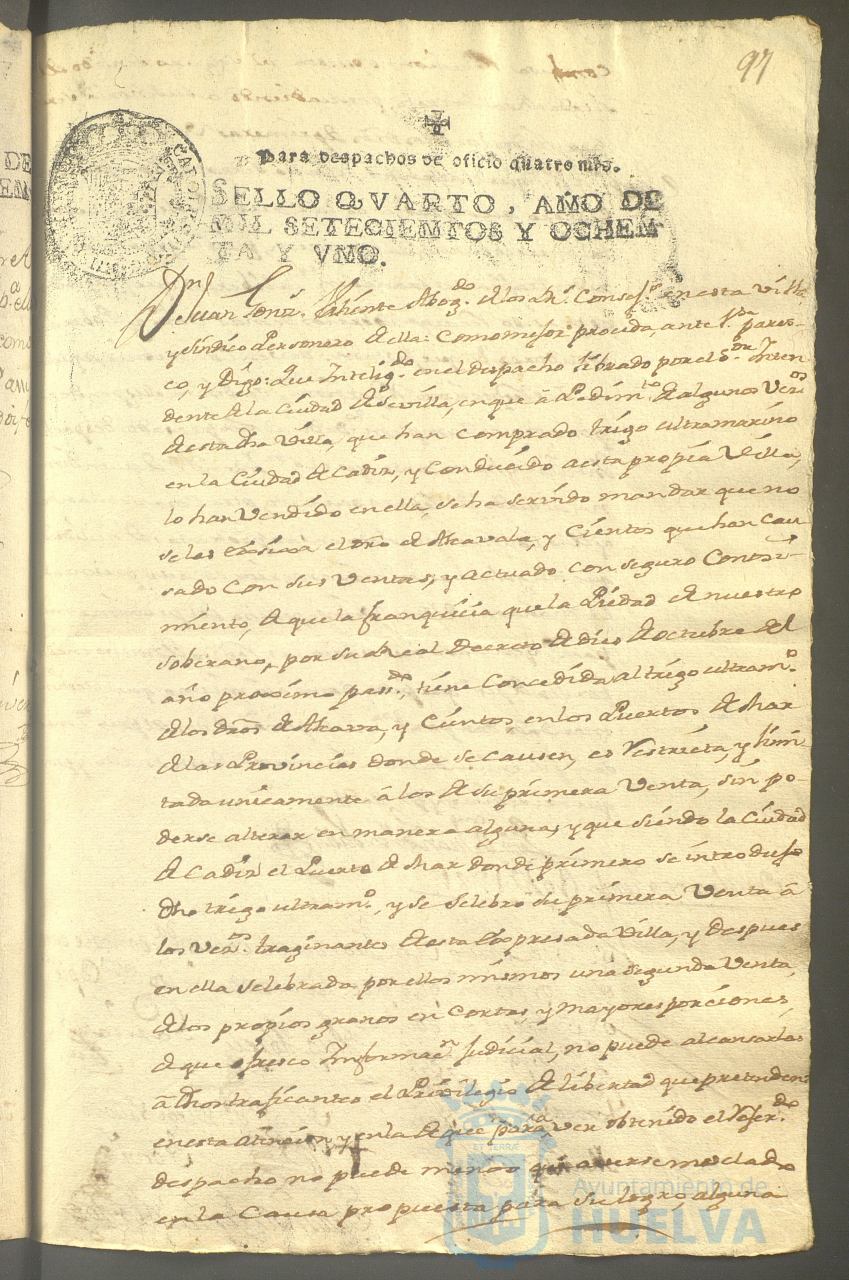 97
Para despachos de oficio quatro mrs.
SELLO QVARTO, AÑO DE
MIL SETECIENTOS Y OCHEN
TA Y VNO.
Dn Juan Valiente Abogdo. de los Rs. Consejs. en esta Villa,
y Síndico Personero de ella: Como mejor proceda, ante Vm. pares-
co, y Digo: Que Inteligdo. en el despacho librado por el Sor. Inten
dente de la Ciudad de Sevilla, en que â Pedimto. de algunos Vezos.
de esta dha Villa, que han comprado trigo ultramarino
en la Ciudad de Cadiz, y Conducido a esta propia Villa,
lo han Vendido en ella, se ha servido mandar que no
se les exsija el dro de Alcavala, y Cientos que han Cau
sado con sus Ventas, y actuado con seguro Conosi-
miento, de que la franquicia que la Piedad de nuestro
soberano, por su Real Decreto de dies de octubre del
año proximo pasdo., tiene Concedida al trigo ultramo.
de los dros de Alcava, y Cientos en los Puertos de Mar
de las Provincias donde se causen, es Restricta, y limi-
tada unicamente â los de su primera Venta, sin po-
derse alterar en manera alguna, y que siendo la Ciudad
de Cadiz el Puerto de Mar donde primero se introduso
dho trigo ultramo., y se selebro su primera Venta â
los Vezos. traginantes de esta Expresada Villa, y despues
en ella selebrada por ellos mismos una segunda Venta,
de los propios granos en Cortas, y mayores porciones,
de que ofresco Informacn. Judicial, no puede alcansarles
â dhos traficantes el Privilegio de libertad que pretenden:
en esta atencion, y en la de que para aver obtenido el Referdo.
despacho no puede menos que averse mesclado
en la Causa propuesta para su logro, alguna
Ayuntamiento de
HUELVA